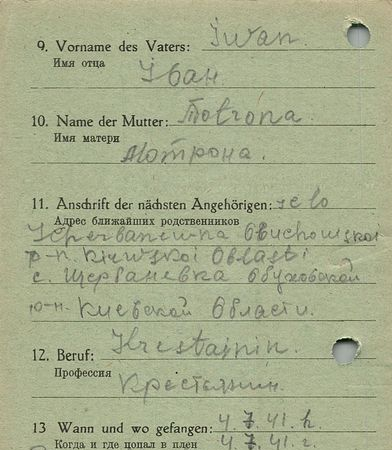 9. Vorname des Vaters: Iwan.
Имя отца Iван
10. Name der Mutter: Motrona
Имя матери Мотрона.
11. Anschrift der nächsten Angehörigen: selo
Адрес ближайших родственников
р-п. Kiewskoi Oblasti
с. Щербаневка Обуховской
р-н. Киевской Области.
12. Beruf: Krestajnin.
Профессия Крестьянин.
13 Wann und wo gefangen: 4.7.41. h.
Когда и где попал в плен 4.7.41 г.